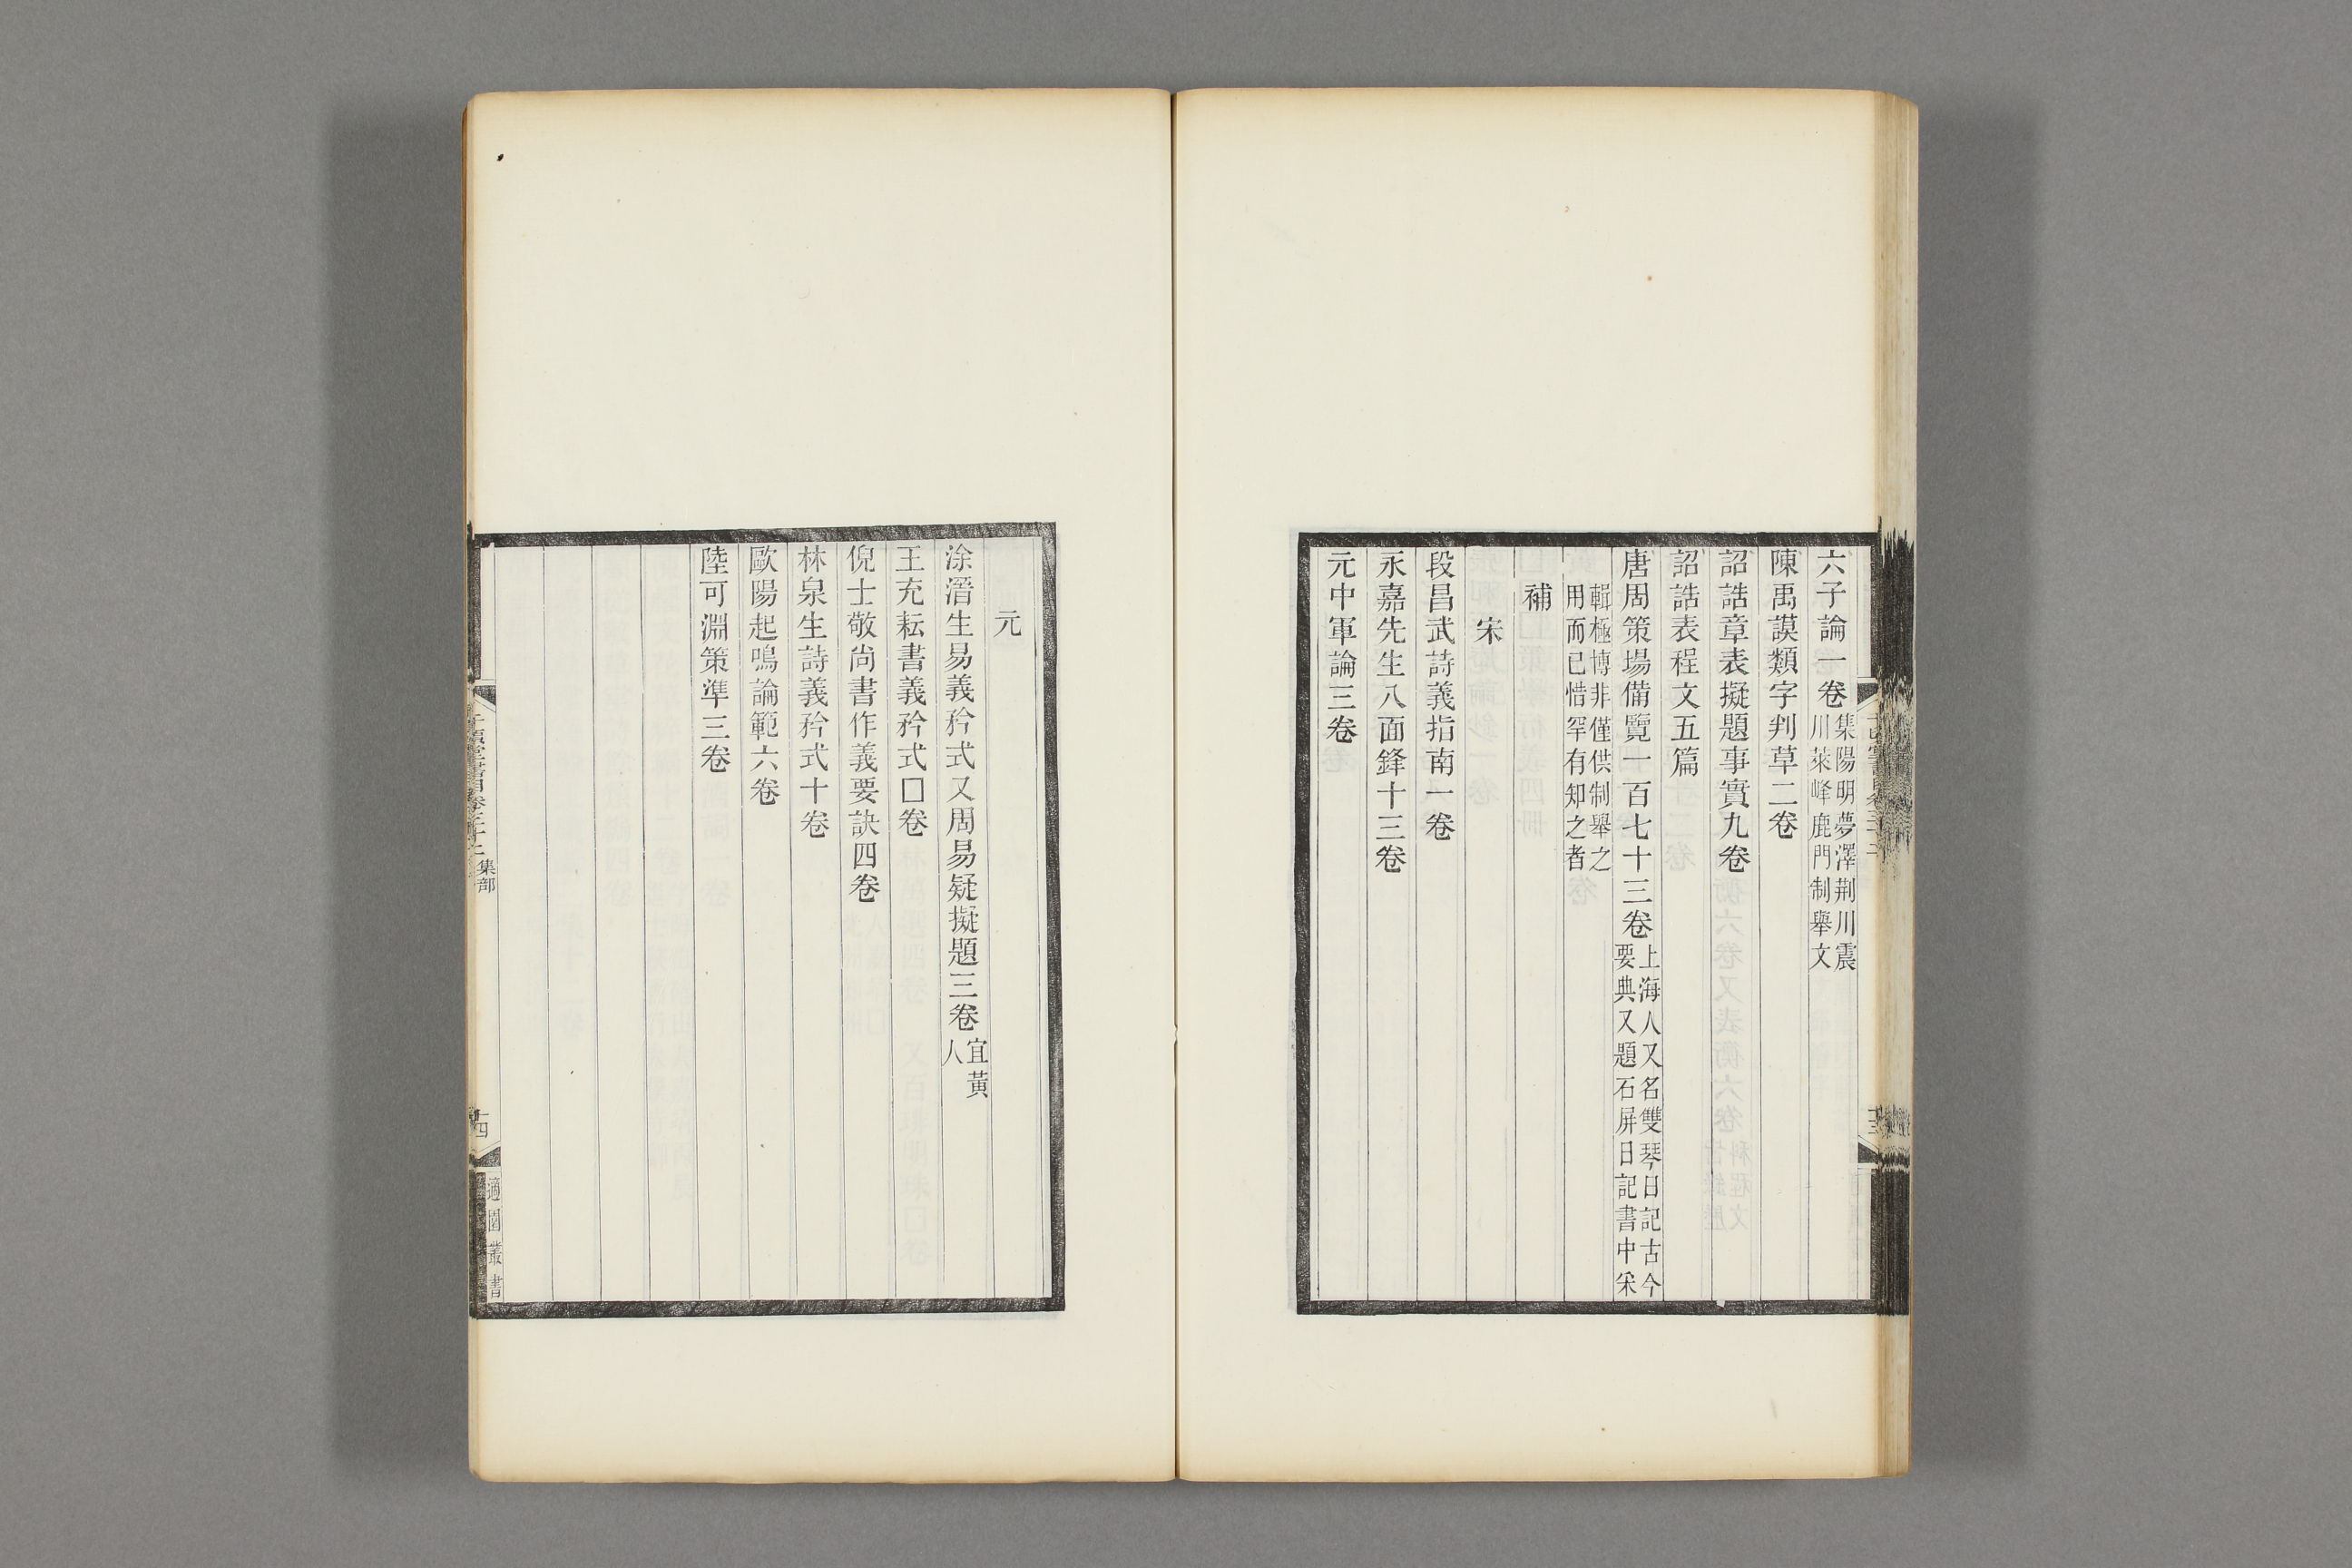 六子論一卷集陽明夢澤荆川震川萊峰鹿門制舉文
陳禹謨類字判草二卷
詔誥章表擬題事實九卷
詔誥表程文五篇
唐周策場備覽一百七十三卷上海人又名雙琴日記古今要典又題石屏日記書中采
輯極博非僅供制舉之用而已惜罕有知之者
補
宋
段昌武詩義指南一卷
永嘉先生八面鋒十三卷
元中軍論三卷
十三
元
涂溍生易義矜式又周易疑擬題三卷宜黃人
王充耘書義矜式□卷
倪士敬尚書作義要訣四卷
林泉生詩義矜式十卷
歐陽起鳴論範六卷
陸可淵策準三卷
千頃堂書目卷三十二 集部
十四
適園叢書